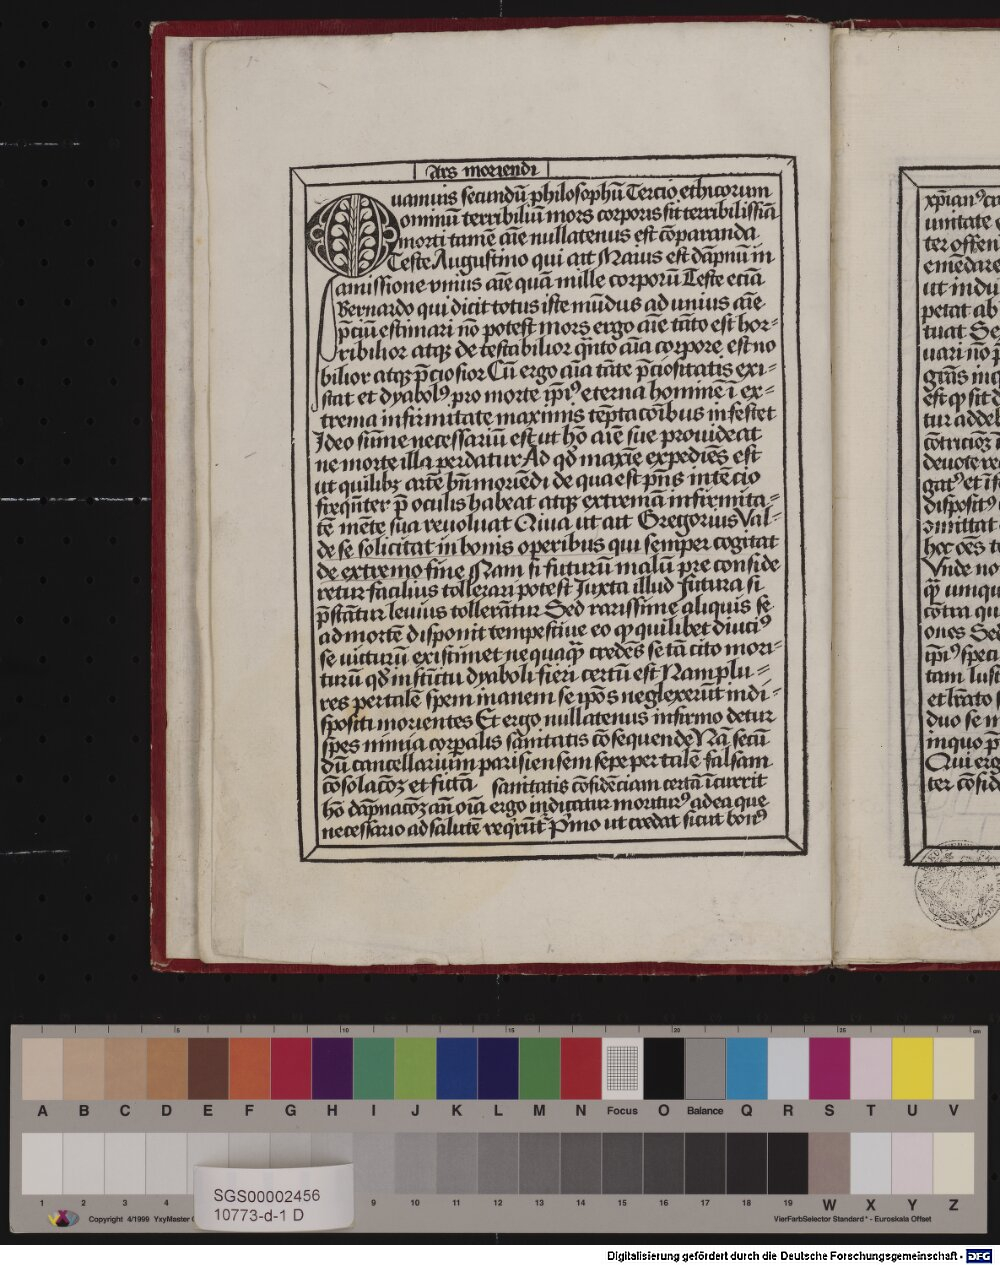 Ars moriendi
Quamuis secundū philosophū Tercio ethicorum
omniū terribiliū mors corporis sit terribilissiā
morti tamē aīe nullatenus est cōparanda
Teste Augustino qui ait Maius est dāpnū in
amissione vnius aīe quā mille corporū Teste eciā
Bernardo qui dicit totus iste mūdus ad unius aīe
p̄ciū estimari nō potest mors ergo aīe tāto est hor-
ribilior atqȝ detestabilior q̄nto aīa corpore est no
bilior atqȝ p̄ciosior Cū ergo aīa tāte p̄ciositatis exi-
stat et dyabolꝰ pro morte ip̄iꝰ eterna hominē ī ex-
trema infirmitate maximis tēptacōibus infestet
Ideo sūme necessariū est ut hō aīe sue prouideat
ne morte illa perdatur Ad qd̄ maxīe expediēs est
ut quilibȝ artē bn̄ moriēdi de qua est pn̄s intēcio
freq̄nter p̄ oculis habeat atqȝ extremā infirmita=
tē mēte sua reuoluat Quia ut ait Gregorius Val-
de se solicitat in bonis operibus qui semper cogitat
de extremo fine Nam si futurū malū pre conside
retur facilius tollerari potest Juxta illud futura si
p̄stātur leuius tollerātur Sed rarissime aliquis se
ad mortē disponit tempestiue eo ꝙ quilibet diuciꝰ
se uicturū existimet nequaqꝫ credēs se tā cito mori-
turū qd̄ instīctu dyaboli fieri certū est Nam plu=
res per talē spem inanem se ip̄os neglexerūt indi-
spositi morientes Et ergo nullatenus infirmo detur
spes nimia corp̄alis sanitatis cōsequende Nā secū
dū cancellarium parisiensem sepe per talē falsam
cōsolacōȝ et fictā sanitatis cōfidēciam certā īcurrit
hō dāpnacōȝ aīi oīa ergo inducatur morituꝰ ad ea que
necessario ad salutē req̄rūt P̄mo ut credat sicut bonꝰ
xp̄ianꝰ
unitate
ter offen
emēdare
ut indu
petat ab
tuat Se
uari nō
gr̄as
est ꝙ sit d
tur
deuote
gatꝰ et
dispositꝰ
mittat
hoc oēs
Vnde no
umqu
cōtra qu
ones Sed
ip̄iꝰ speci
tam Iust
duo se m
inquo
Qui erg
ter cōfid
5 10 15 20 25 cm
A B C D E F G H I J K L M N Focus O Balance Q R S T U V
1 2 3 4 9 10 11 12 13 14 15 16 17 18 19 W X Y Z
SGS00002456
10773-d-1 D
Copyright 4/1999 YxyMaster
VierFarbSelector Standard* - Euroskala Offset
Digitalisierung gefördert durch die Deutsche Forschungsgemeinschaft - DFG